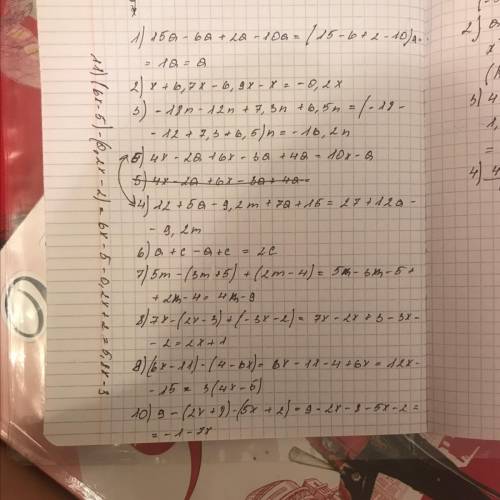 1) 15a - 6a + 2a - 10a = (15 - 6 + 2 - 10)a =
= 1a = a
2) x + 6,7x - 6,9x - x = -0,2x
3) -18n - 12n + 7,3n + 6,5n = (-18 -
- 12 + 7,3 + 6,5)n = -16,2n
5) 4x - 2a + 6x - 3a + 4a = 10x - a
5) 4x - 2a + 6x - 3a + 4a =
4) 12 + 5a - 9,2m + 7a + 15 = 27 + 12a -
- 9,2m
6) a + c - a + c = 2c
7) 5m - (3m + 5) + (2m - 4) = 5m - 3m - 5 +
+ 2m - 4 = 4m - 9
8) 7x - (2x - 3) + (-3x - 2) = 7x - 2x + 3 - 3x -
- 2 = 2x + 1
9) (6x - 11) - (4 - 6x) = 6x - 11 - 4 + 6x = 12x -
- 15 = 3(4x - 5)
10) 9 - (2x + 8) - (5x + 2) = 9 - 2x - 8 - 5x - 2 =
= -1 - 7x
11) (6x - 5) - (0,2x - 2) = 6x - 5 - 0,2x + 2 = 5,8x - 3
2)
3) 4
1,
=
4) 4